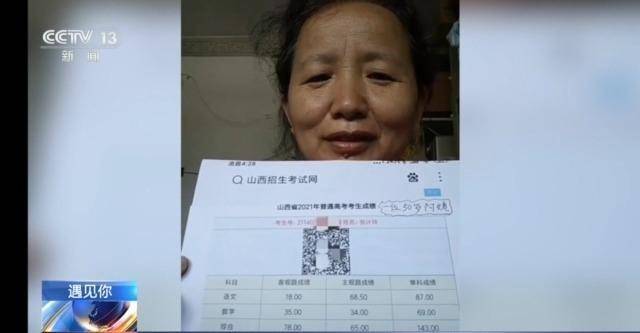 CCTV 13
新闻
凌晨4:28
山西招生考试网
山西省2021年普通高考考生成绩
一位50岁阿姨
考生号: 姓名:
科目 客观题成绩 主观题成绩 单科成绩
语文 18.00 68.50 87.00
数学 35.00 34.00 69.00
综合 78.00 65.00 143.00
遇见你